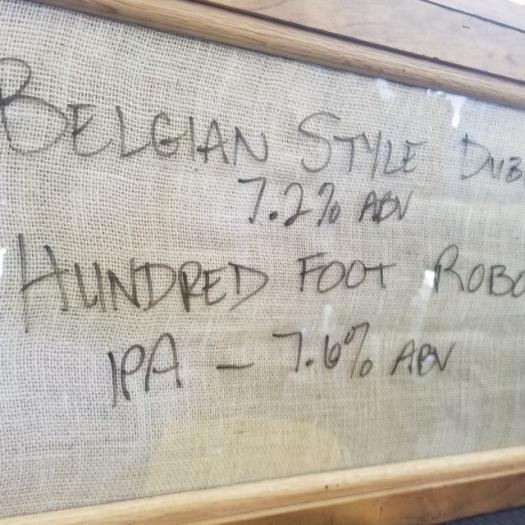 BELGIAN STYLE DUB
7.2% ABV
HUNDRED FOOT ROBO
IPA - 7.6% ABV